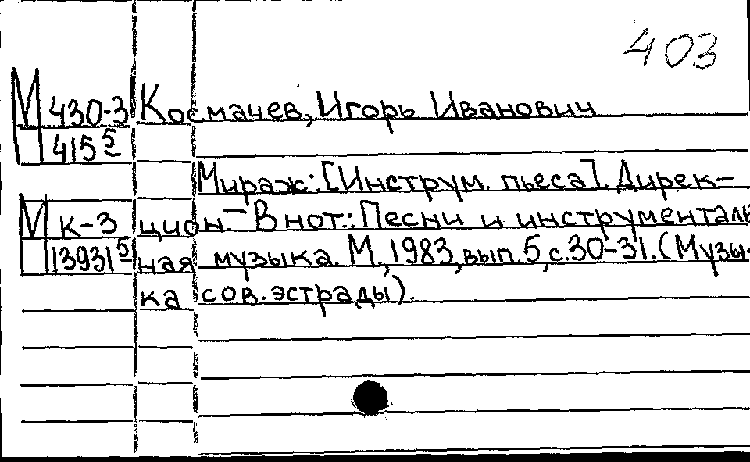 403
М 430-3 Космачев, Игорь Иванович
415 5
Мираж: [Инструм. пьеса]. Дирек-
М К-3 цион. — В нот.: Песни и инструменталь
13931 5 ная музыка. М., 1983, вып. 5, с. 30-31. (Музы-
ка сов. эстрады).